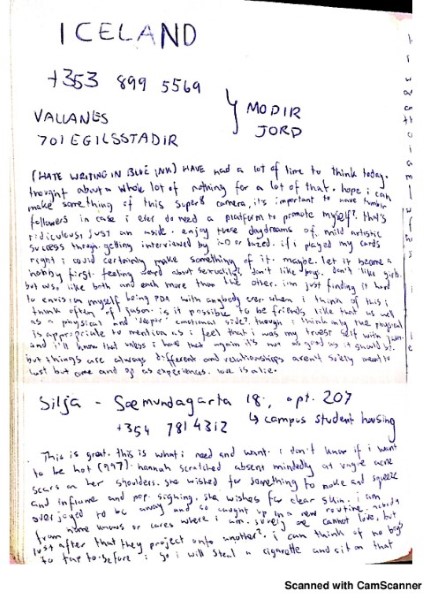 ICELAND
+353 899 5569
VALLANES
701 EGILSSTADIR
MODIR
JORD
(HATE WRITING IN BLUE INK) HAVE had a lot of time to think today.
thought about a whole lot of nothing for a lot of that. hope i can
make something of this super8 camera, it's important to have human
followers in case i ever do need a platform to promote myself?. that's
ridiculous; just an aside. enjoy these daydreams of mild artistic
success through getting interviewed by i-D or Dazed. if i played my cards
right i could certainly make something of it. maybe. let it become a
hobby first. feeling about sexuality; don't like boys. don't like girls.
but also like both and each more than the other. i'm just finding it hard
to envision myself being PDA with anybody ever when i think of this i
think often of Jason. is it possible to be friends like that as well
as a physical and deeper emotional side?. though i think only the physical
is appropriate to mention as i feel that i was my truest self with
and i know that when i have that again it's not as good as it should be.
but things are always different and relationships aren't solely meant to
last but come and go as experiences. we is alie.
Silja - Sæmundagarta 18, apt. 207
↳ campus student housing
+354 7814312
This is great. this is what i need and want. i don't know if i want
to be hot (???). hannah scratched absent mindedly at acne
scars on her shoulders. she wished for something to make and squeeze
and inflame and pop. sighing. she wishes for clear skin. i am
overjoyed to be away and so caught up in a new routine. nobody
from home knows or cares where i am. surely we cannot love, but
lust after that they project onto another?. i can think of no
to before; so i will steal a cigarette and sit on that
Scanned with CamScanner